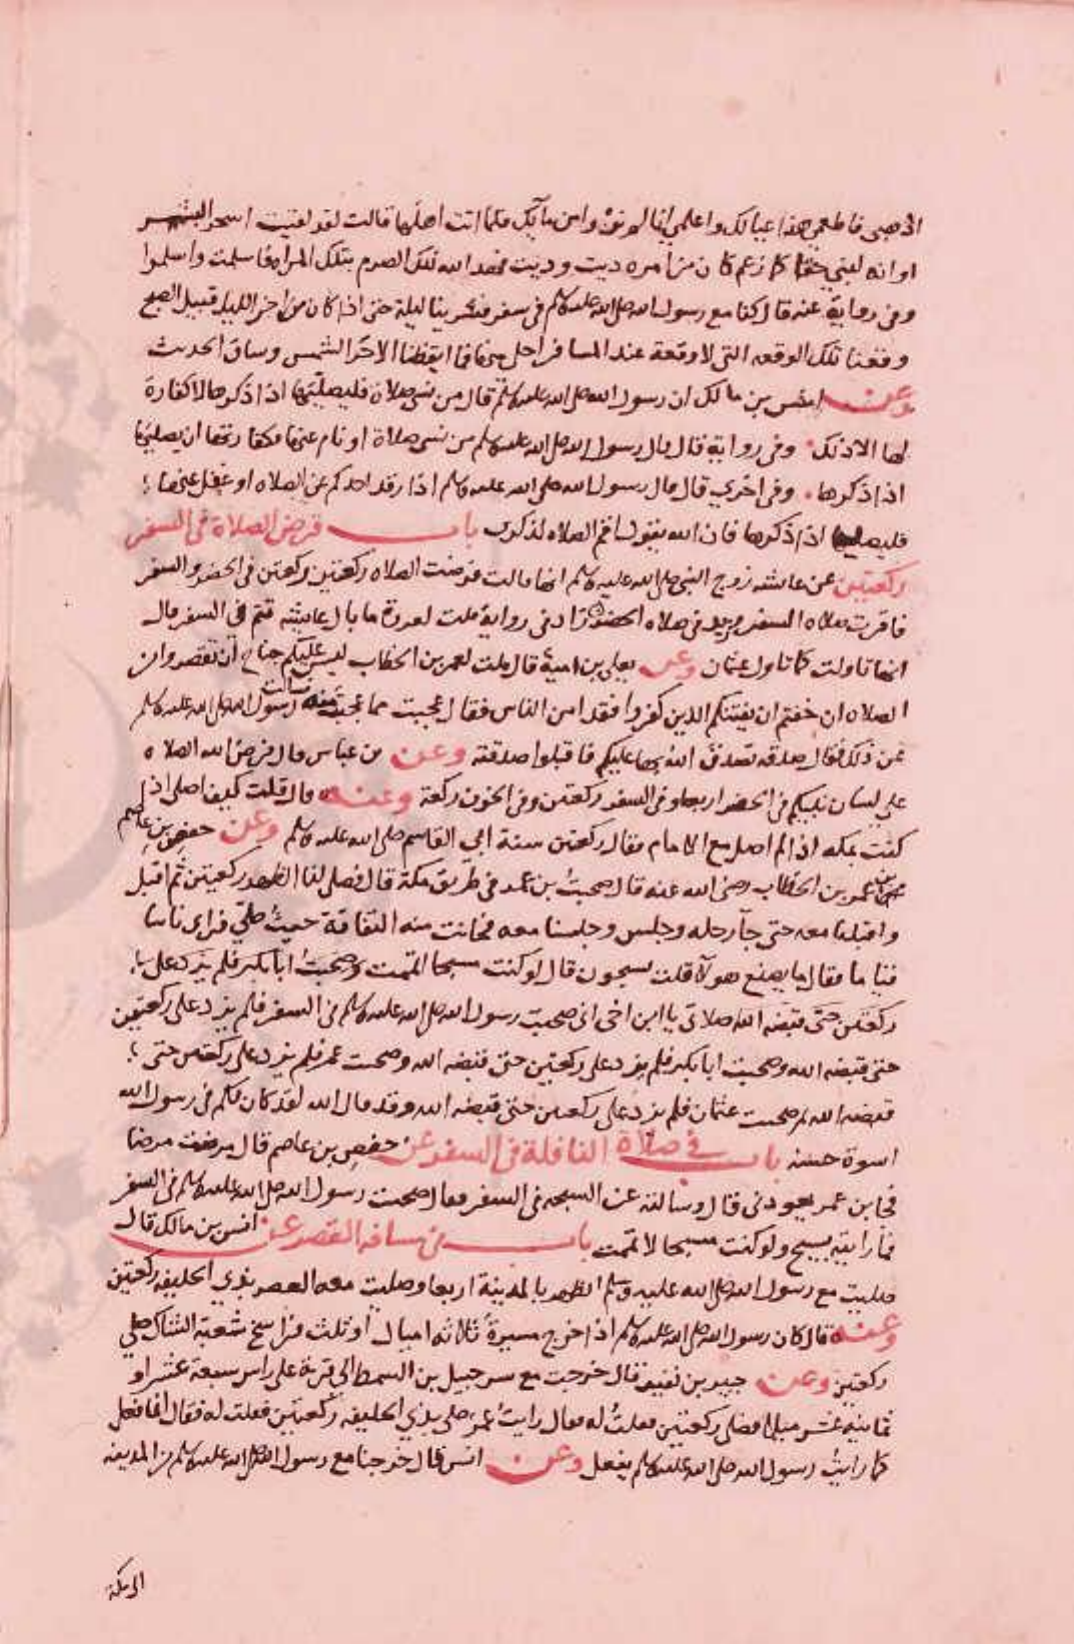 اذهبي فاطعمي هذا عيالك واعلمي انا لم نرزأ من مآيك فلما اتت اهلها قالت لقد لقيت اسحر البشر
او انه لنبي حقا كما زعم كان من امره ديت وديت فهدا الله ذلك الصرم بتلك المراه فاسلمت واسلموا
وفي رواية عنه قال كنا مع رسول الله صلى الله عليه وسلم في سفر فسرينا ليلة حتى اذا كان من اخر الليل قبيل الصبح
وقعنا تلك الوقعه التي لا وقعة عند المسافر احلى منها فما ايقظنا الا حر الشمس وساق الحديث
وعن انس بن مالك ان رسول الله صلى الله عليه وسلم قال من نسي صلاة فليصليها اذا ذكرها لا كفارة
لها الا ذلك وفي رواية قال قال رسول الله صلى الله عليه وسلم من نسي صلاة او نام عنها فكفارتها ان يصليها
اذا ذكرها وفي اخري قال قال رسول الله صلى الله عليه وسلم اذا رقد احدكم عن الصلاه او غفل عنها
فليصلها اذا ذكرها فان الله يقول اقم الصلاه لذكري باب فرض الصلاة في السفر
ركعتين عن عائشه زوج النبي صلى الله عليه وسلم انها قالت فرضت الصلاه ركعتين ركعتين في الحضر والسفر
فاقرت صلاه السفر وزيد في صلاه الحضر زاد في رواية قلت لعروة ما بال عايشه تتم في السفر قال
انها تاولت كما تاول عثمان وعن يعلى بن امية قال قلت لعمر بن الخطاب ليس عليكم جناح ان تقصروا من
الصلاه ان خفتم ان يفتنكم الذين كفروا فقد امن الناس فقال عجبت مما عجبت منه فسالت رسول الله صلى الله عليه وسلم
عن ذلك فقال صدقه تصدق الله بها عليكم فاقبلوا صدقته وعن بن عباس قال فرض الله الصلاه
على لسان نبيكم في الحضر اربعا وفي السفر ركعتين وفي الخوف ركعة وعنه قال قلت كيف اصلى اذا
كنت بمكه اذا لم اصل مع الامام فقال ركعتين سنة ابي القاسم صلى الله عليه وسلم وعن حفص بن عاصم
بن عمر بن الخطاب رضي الله عنه قال صحبت بن عمر في طريق مكة قال فصلى لنا الظهر ركعتين ثم اقبل
واقبلنا معه حتى جآ رحله وجلس وجلسنا معه فحانت منه التفاتة حيث صلى فراى ناسا
قياما فقال ما يصنع هولآ قلت يسبحون قال لو كنت مسبحا اتممت وصحبت ابا بكر فلم يزد على
ركعتين حتى قبضه الله صلاتي يا ابن اخي اني صحبت رسول الله صلى الله عليه وسلم في السفر فلم يزد على ركعتين
حتى قبضه الله وصحبت ابا بكر فلم يزد على ركعتين حتى قبضه الله وصحبت عمر فلم يزد على ركعتين حتى
قبضه الله ثم صحبت عثمان فلم يزد على ركعتين حتى قبضه الله وقد قال الله لقد كان لكم في رسول الله
اسوة حسنه باب في صلاة النافلة في السفر عن حفص بن عاصم قال مرضت مرضا
فجا بن عمر يعودني قال وسالته عن السبحه في السفر فقال صحبت رسول الله صلى الله عليه وسلم في السفر
فما رايته يسبح ولو كنت مسبحا لاتممت باب في مسافه القصر عن انس بن مالك قال
صليت مع رسول الله صلى الله عليه وسلم الظهر بالمدينة اربعا وصليت معه العصر بذي الحليفه ركعتين
وعنه قال كان رسول الله صلى الله عليه وسلم اذا خرج مسيرة ثلاثه اميال او ثلث فراسخ شعبة الشاك صلى
ركعتين وعن جبير بن نفير قال خرجت مع سرحبيل بن السمط الى قرية على راس سبعة عشر او
ثمانيه عشر ميلا فصلى ركعتين فقلت له فقال رايت عمر صلى بذي الحليفه ركعتين فقلت له فقال انما افعل
كما رايت رسول الله صلى الله عليه وسلم يفعل وعن انس قال خرجنا مع رسول الله صلى الله عليه وسلم من المدينه
الى مكة